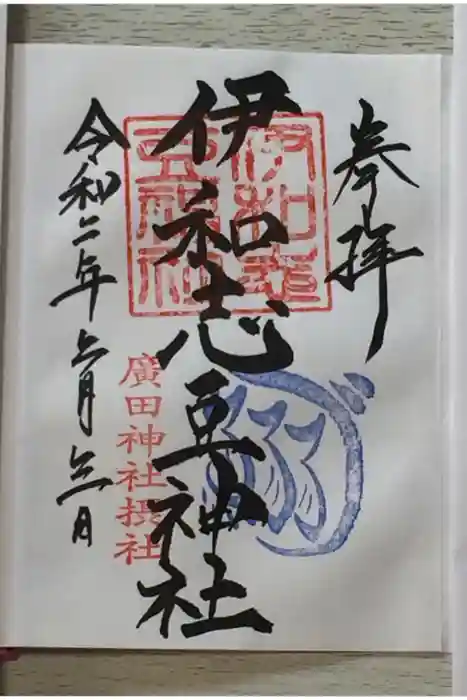 奉拝
伊和志豆神社
伊和志
豆神社
廣田神社摂社
令和二年 月 日